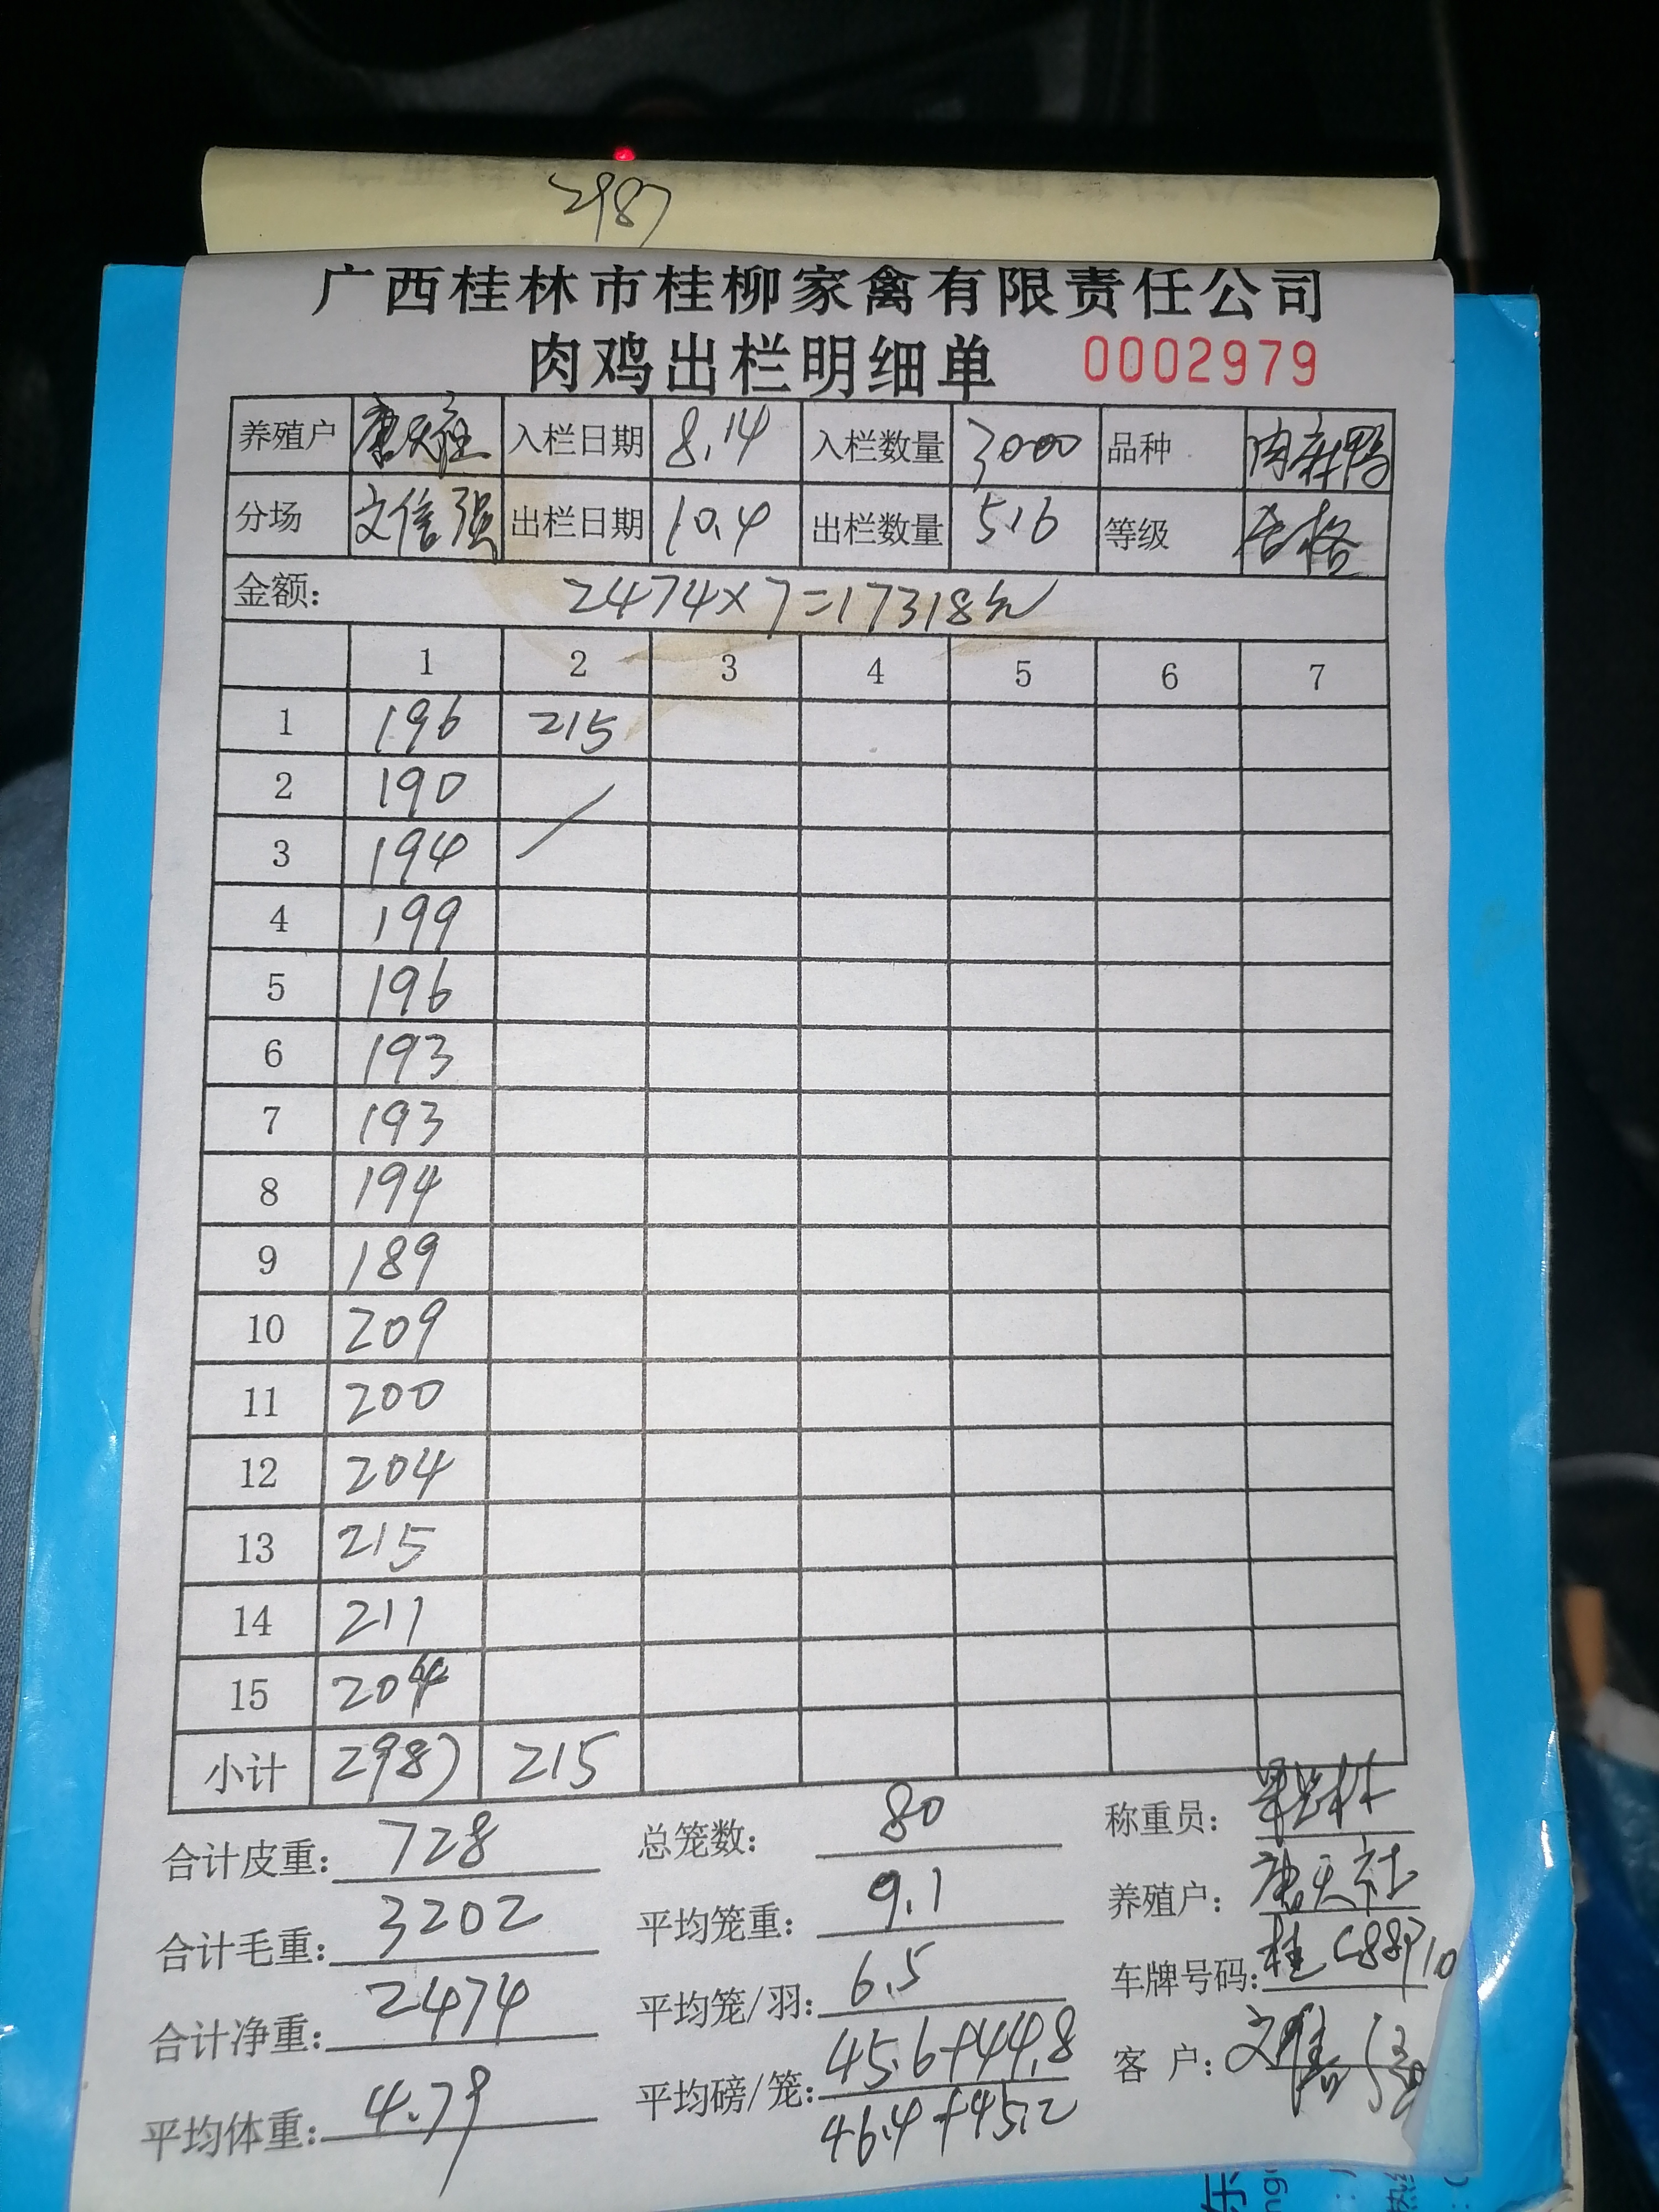 2987
广西桂林市桂柳家禽有限责任公司
肉鸡出栏明细单 0002979
养殖户 唐天社 入栏日期 8.14 入栏数量 3000 品种 肉麻鸭
分场 文信强 出栏日期 10.4 出栏数量 516 等级 合格
金额: 2474×7=17318元
1 2 3 4 5 6 7
1 196 215
2 190
3 194
4 199
5 196
6 193
7 193
8 194
9 189
10 209
11 200
12 204
13 215
14 211
15 204
小计 2987 215
合计皮重: 728 总笼数: 80 称重员:
合计毛重: 3202 平均笼重: 9.1 养殖户: 唐天社
合计净重: 2474 平均笼/羽: 6.5 车牌号码: 桂C88P10
平均体重: 4.79 平均磅/笼: 45.6+44.8 客户:
46.4+45.2
东